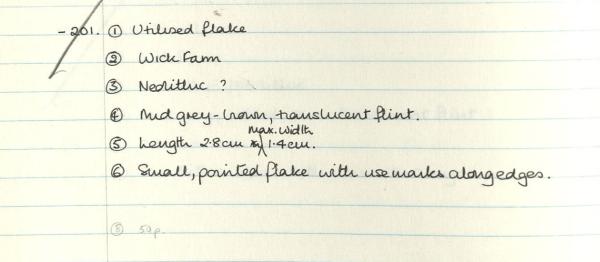 - 201. ① Utilised flake
② Wick Farm
③ Neolithic ?
④ Mid grey-brown, translucent flint.
max. width
⑤ Length 2.8cm x 1.4cm.
⑥ Small, pointed flake with use marks along edges.
⑧ 50p.